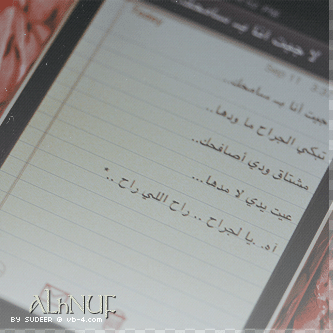 لا جيت أنا بـ سامحك
Today
Sep 11
جيت أنا بـ سامحك..
تبكي الجراح ما ودها..
مشتاق ودي أصافحك..
عيت يدي لا مدها...
آه.. يا لجراح .. راح اللي راح ..*
ALhNUF
BY SUDEER @ vb-4.com